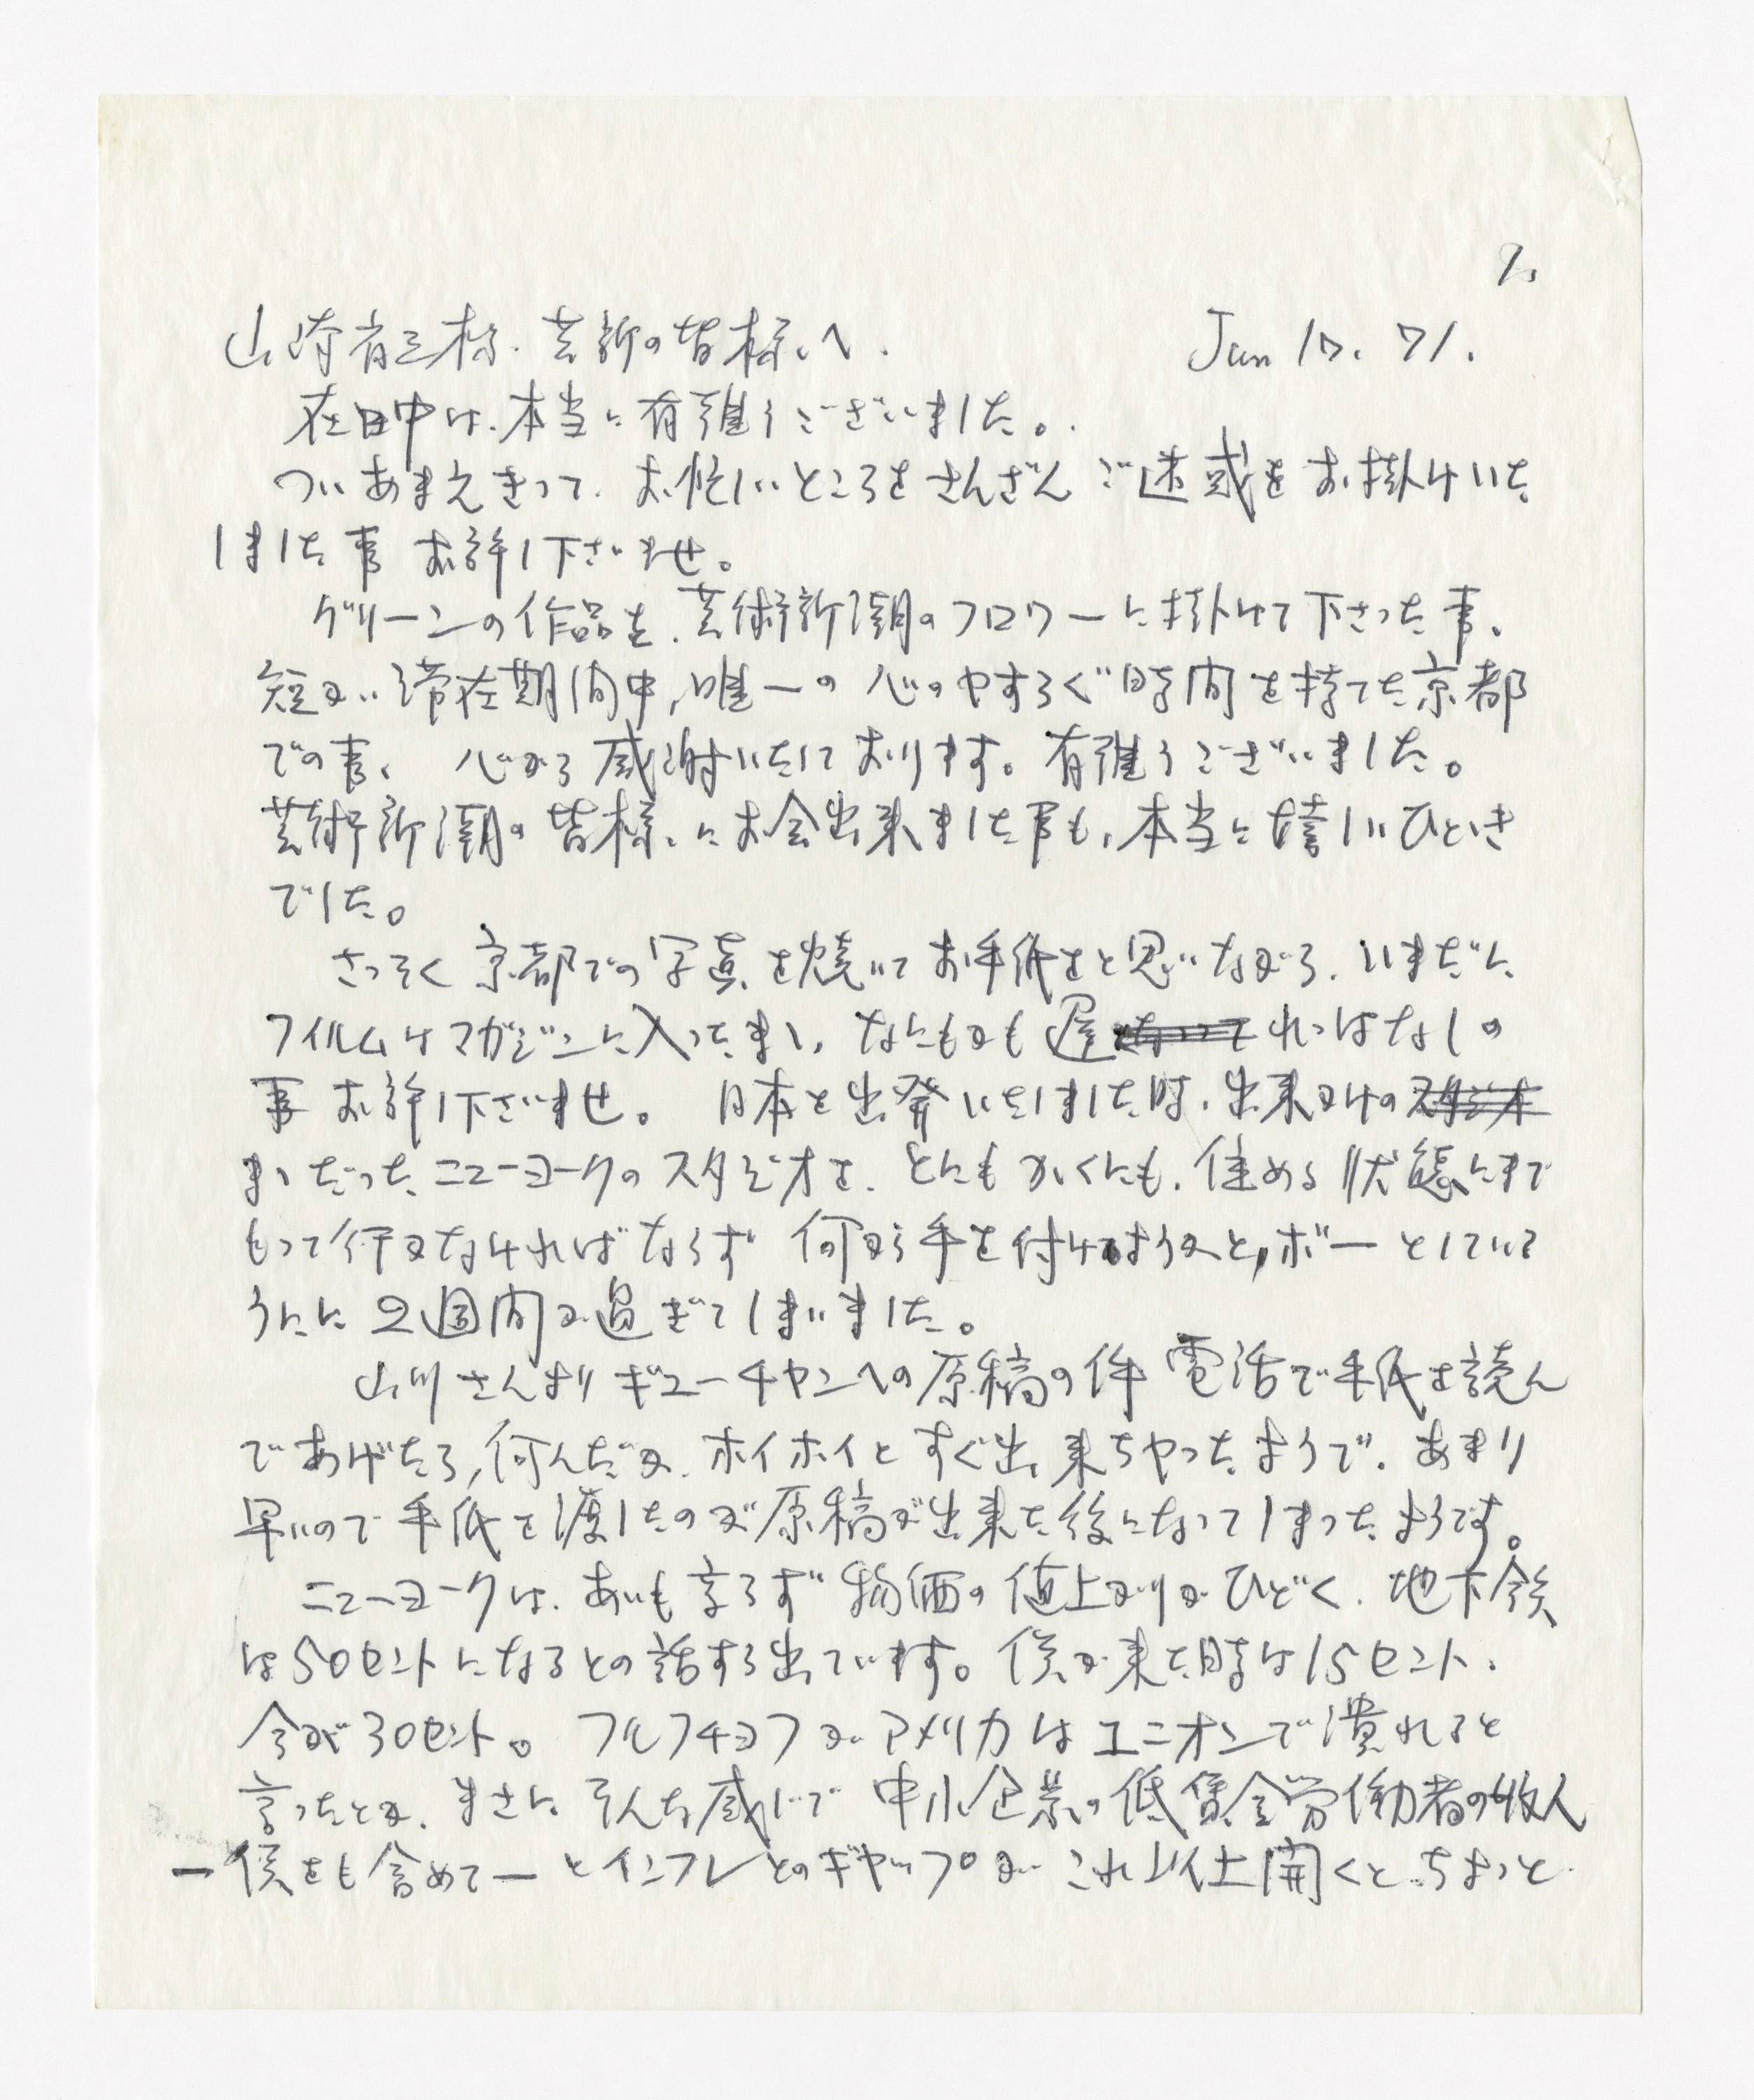 山崎省三様. 芸新の皆様へ. Jan 17. 71.
在日中は、本当に有難うございました。
ついあまえきって、お忙しいところをさんざんご迷惑をお掛けいた
しました事 お許し下さいませ。
グリーンの作品を、芸術新潮のフロワーに掛けて下さった事、
短かい滞在期間中、唯一の心のやすらぐ時間を持てた京都
での事、 心から感謝いたしております。有難うございました。
芸術新潮の皆様にお会出来ました事も、本当に嬉しいひととき
でした。
さっそく京都での写真を焼いてお手紙をと思いながら、いまだに
フイルムはマガジンに入ったまゝ、なにもかも遅れっぱなしの
事 お許し下さいませ。 日本を出発いたしました時、出来かけの
まゝだったニューヨークのスタジオを、とにもかくにも、住める状態にまで
もって行かなければならず 何から手を付けようかと、ボーとしている
うちに2週間が過ぎてしまいました。
山川さんより ギューチャンへの原稿の件 電話で手紙を読ん
であげたら、何んだか、ホイホイとすぐ出来ちゃったようで、あまり
早いので手紙を渡したのが原稿が出来た後になってしまったようです。
ニューヨークは、あいも変らず物価の値上がりがひどく、地下鉄
は50セントになるとの話すら出ています。僕が来た時は15セント、
今が30セント。フルフチョフが アメリカはユニオンで潰れると
言ったとか、まさに そんな感じで 中小企業の低賃金労働者の收入
ー僕をも含めてーとインフレとのギャップが これ以上開くと、ちょっと